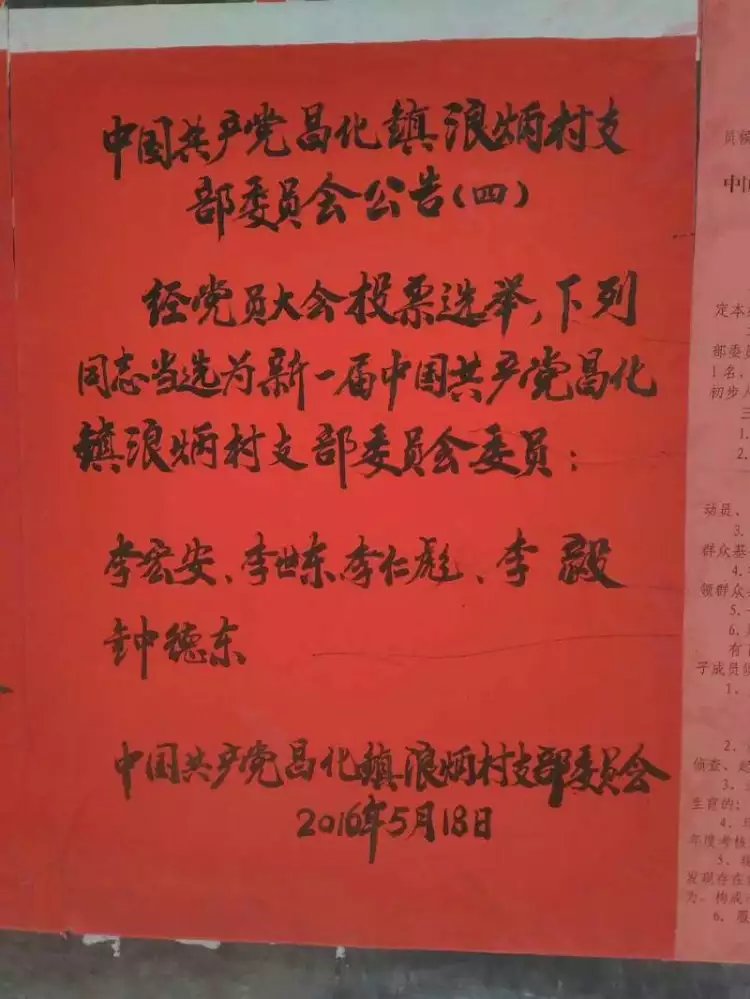 中国共产党昌化镇浪炳村支
部委员会公告(四)
经党员大会投票选举,下列
同志当选为新一届中国共产党昌化
镇浪炳村支部委员会委员:
李宏安、李世东、李仁彪、李毅
钟德东
中国共产党昌化镇浪炳村支部委员会
2016年5月18日
中
定本
部委员
1名,
初步人
1.
2.
动员、
3.
群众基
4.
领群众
5.
6.
有
子成员
1.
2.
侦查、
3.
生育的;
4.
年度考核
5.
发现存在
为,构成
6.